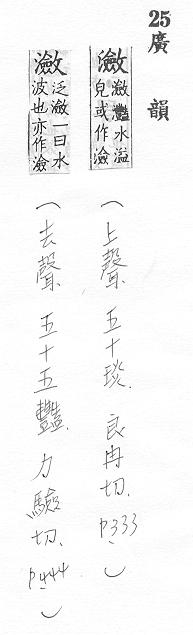 25廣韻
瀲
瀲灩水溢
皃或作澰
(上聲 五十琰. 良冉切. p333.)
瀲
泛瀲一曰水
波也亦作澰
(去聲 五十五豔. 力驗切. p444.)